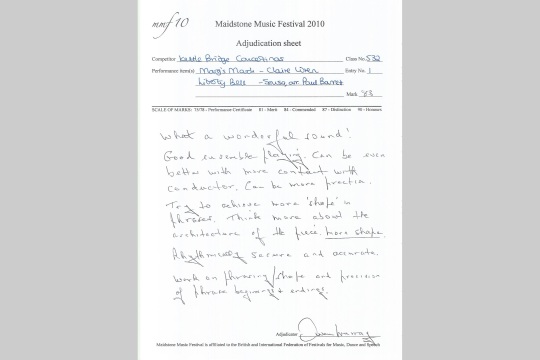 mmf 10
Maidstone Music Festival 2010
Adjudication sheet
Competitor Kettle Bridge Concertinas Class No. 532
Performance item(s) Marg's March - Claire Wren Entry No. 1
Liberty Bell - Sousa, arr. Paul Barrett
Mark 83
SCALE OF MARKS: 75/78 - Performance Certificate 81 - Merit 84 - Commended 87 - Distinction 90 - Honours
What a wonderful sound!
Good ensemble playing. Can be even
better with more contact with
conductor. Can be more precise.
Try to achieve more 'shape' in
phrases. Think more about the
architecture of the piece. more shape.
Rhythmically secure and accurate.
Work on phrasing/shape and precision
of phrase beginnings & endings.
Adjudicator
Maidstone Music Festival is affiliated to the British and International Federation of Festivals for Music, Dance and Speech